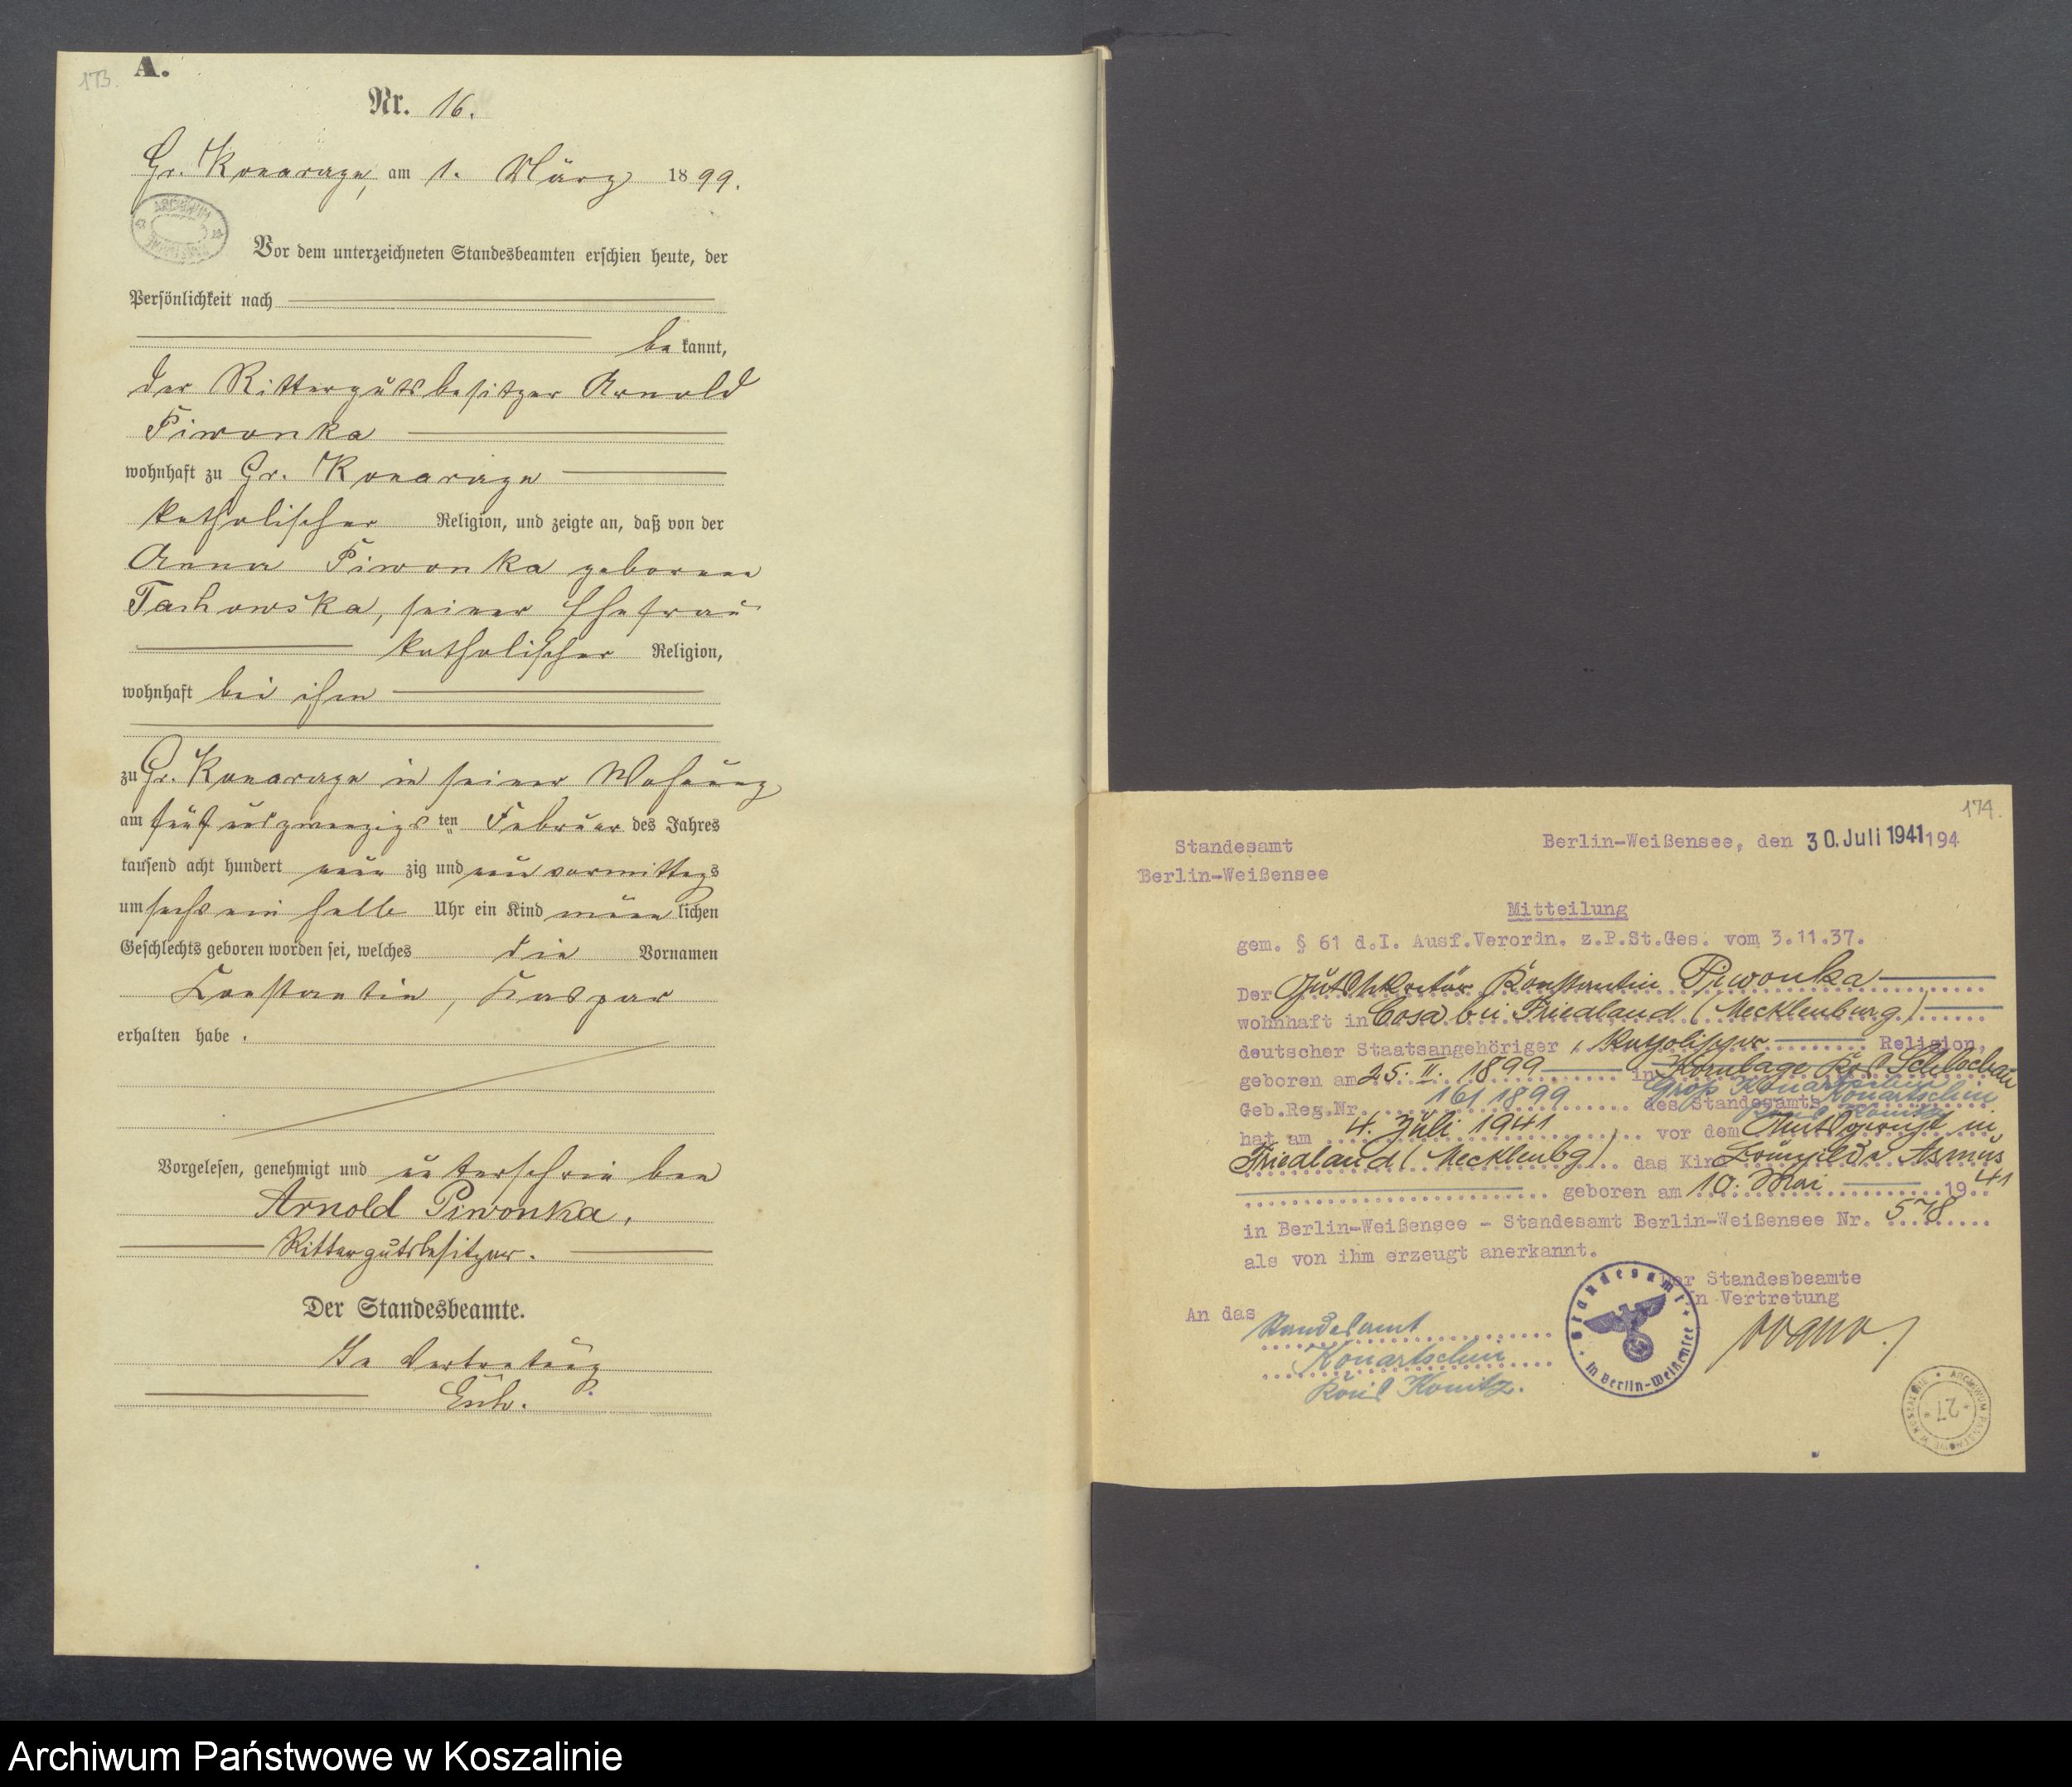 173.
A.
Nr. 16.
Gr. Konarczyn, am 1. März 1899.
Vor dem unterzeichneten Standesbeamten erschien heute, der
Persönlichkeit nach
be kannt,
der Rittergutsbesitzer Arnold
Piwonka
wohnhaft zu Gr. Konarczyn
katholischer Religion, und zeigte an, daß von der
Anna Piwonka geborene
seiner Ehefrau
katholischer Religion,
wohnhaft bei ihm
zu Gr. Konarczyn in seiner Wohnung
am fünf und zwanzigs ten Februar des Jahres
tausend acht hundert neun zig und neun vormittags
um sechs ein halb Uhr ein Kind männ lichen
Geschlechts geboren worden sei, welches die Vornamen
Constantin, Kaspar
erhalten habe.
Vorgelesen, genehmigt und unterschrieben
Arnold Piwonka,
Rittergutsbesitzer.
Der Standesbeamte.
In Vertretung
174.
Standesamt
Berlin-Weißensee
Berlin-Weißensee, den 30. Juli 1941 194
Mitteilung
gem. § 61 d.I. Ausf.Verordn. z.P.St.Ges. vom 3.11.37.
Der Gutssekretär Konstantin Piwonka
wohnhaft in Cosa bei Friedland (Mecklenburg)
deutscher Staatsangehöriger, katholischer Religion,
geboren am 25. II. 1899 in Schlochau
Groß Konartschin
Geb.Reg.Nr. 16/1899 des Standesamts Konartschin
Kreis Konitz
hat am 4. Juli 1941 vor dem Amtsgericht in
Friedland (Mecklenbg) das Kind Asmus
geboren am 10. Mai 1941
in Berlin-Weißensee - Standesamt Berlin-Weißensee Nr. 578
als von ihm erzeugt anerkannt.
Der Standesbeamte
In Vertretung
An das
Standesamt
Konartschin
Kreis Konitz.
Standesamt
in Berlin-Weißensee
ARCHIWUM PAŃSTWOWE W KOSZALINIE
27
Archiwum Państwowe w Koszalinie